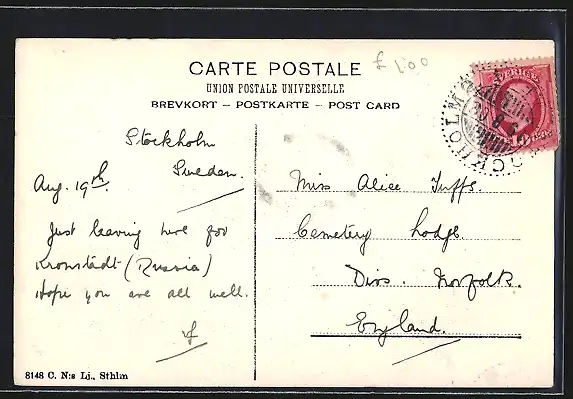 £1.00
CARTE POSTALE
UNION POSTALE UNIVERSELLE
BREVKORT – POSTKARTE – POST CARD
SVERIGE
STOCKHOLM
Stockholm
Sweden.
Aug. 19th.
Just leaving here for
Kronstadt (Russia)
Hope you are all well.
Miss Alice Tuffs.
Cemetery Lodge
Diss. Norfolk.
England.
8148 C. N:s Lj., Sthlm